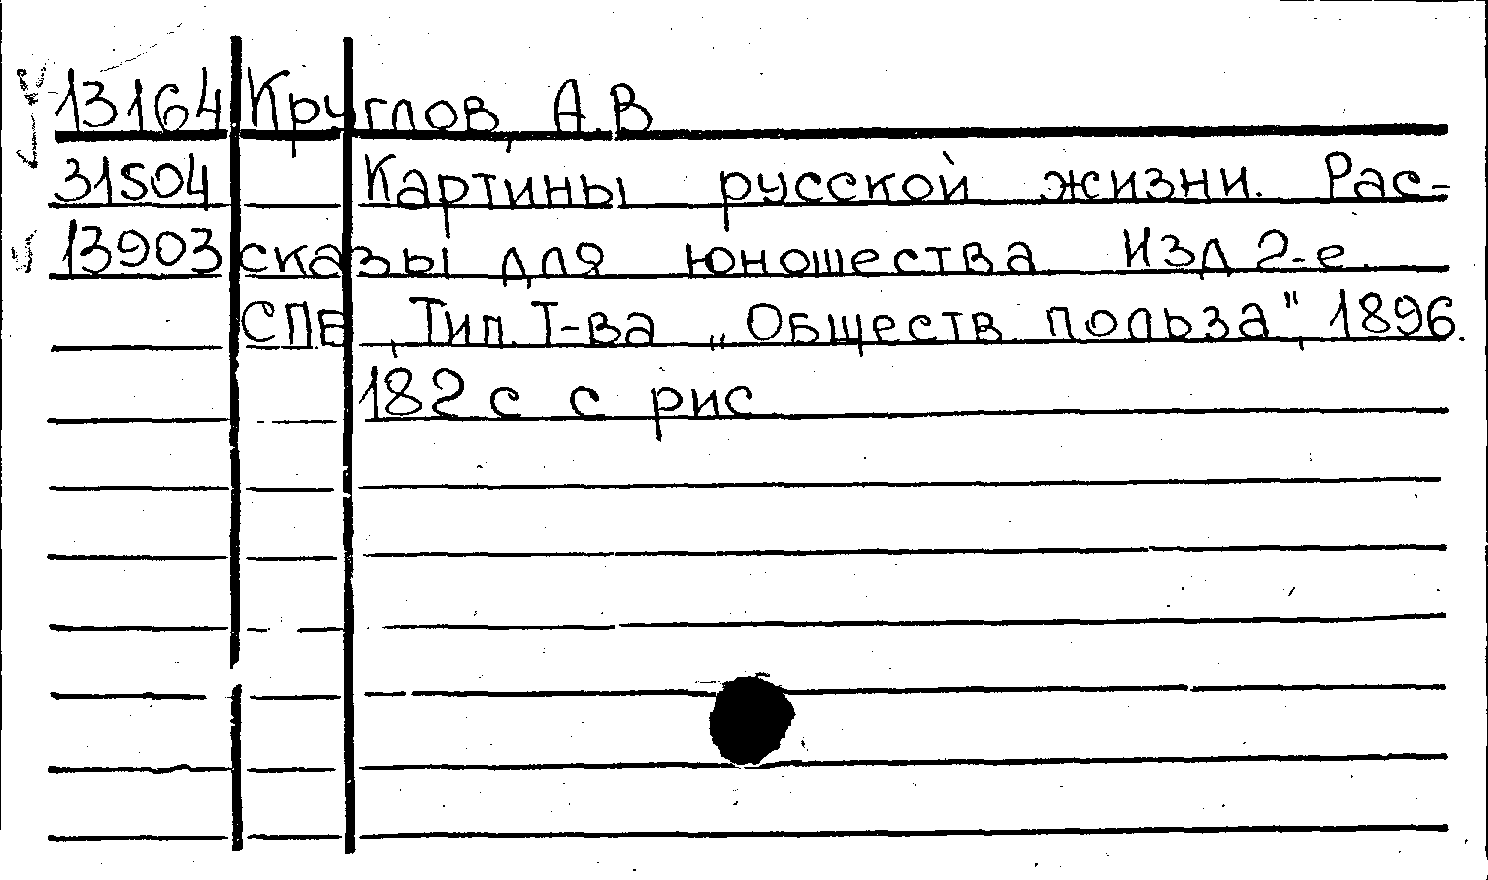 13164 Круглов, А.В
31504 Картины русской жизни. Рас-
13903 сказы для юношества Изд 2-е.
СПБ, Тип. Т-ва „Обществ. польза", 1896.
182 с с рис